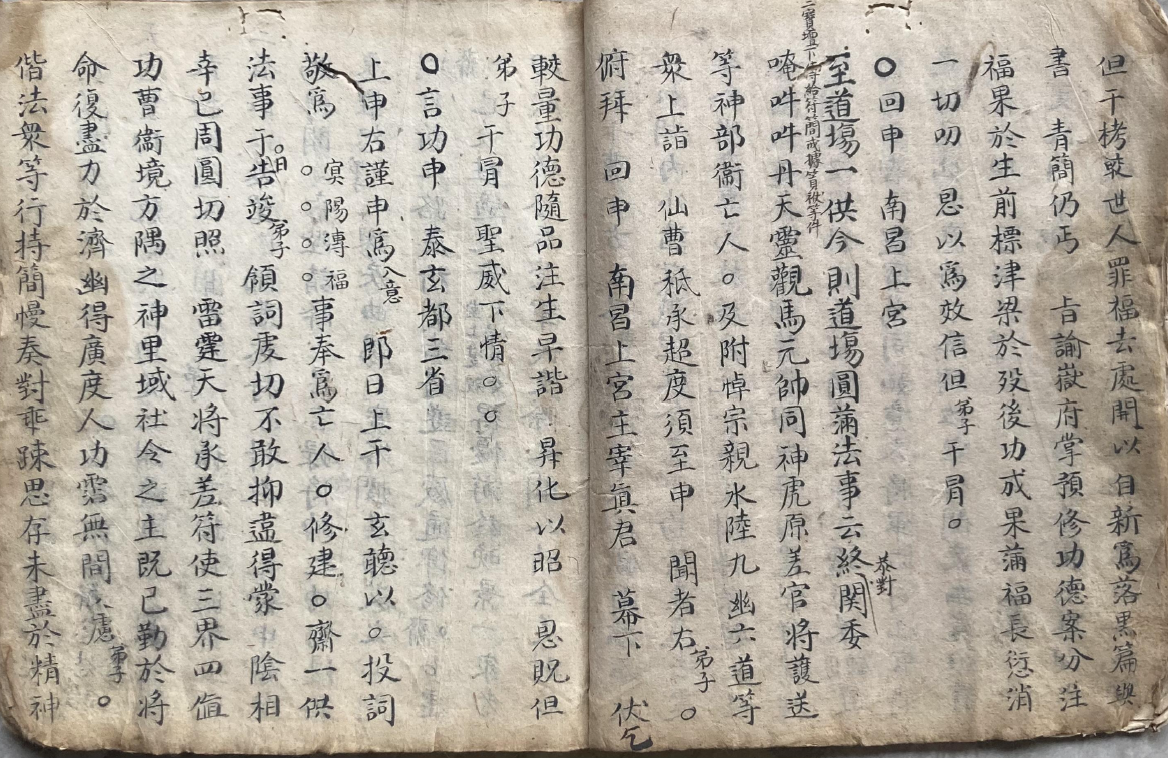 但干栲㚁世人罪福去處開以自新寫落黑篇與
書 青簡仍丐 㫖諭嶽府掌預修功德案分注
福果於生前標津梁於殁後功成果蒲福長愆消
一切叨 恩以爲效信但弟子干冐○
○回申 南昌上宮
至道塲一供今則道塲圓蒲法事云終関委
恭對
唵吽吽丹天靈觀馬元帥同神虎原差官將護送
等神部衞亡人○及附悼宗親水陸九幽六道等
衆上詣 仙曹秪承超度須至申 聞者右弟子○
俯拜 回申 南昌上宮主宰眞君 幕下 伏乞
較量功德隨品注生早諧 昇化以昭全 恩貺但
弟子干冐聖威下情○○
○言功申 泰玄都三省
上申右謹申爲入意 郎日上干 玄聽以○投詞
敬爲○○○○冥陽溥福事奉爲亡人○修建○齋一供
法事于○日告竣弟子領詞虔切不敢抑盡得蒙 陰相
幸已周圓切照 雷霆天將承差符使三界四值
功曹衞境方隅之神里域社令之主既已勤於將
命復盡力於濟幽得廣度人功雲無間 弟子○
偕法衆等行持簡慢奏對乖踈思存未盡於精神